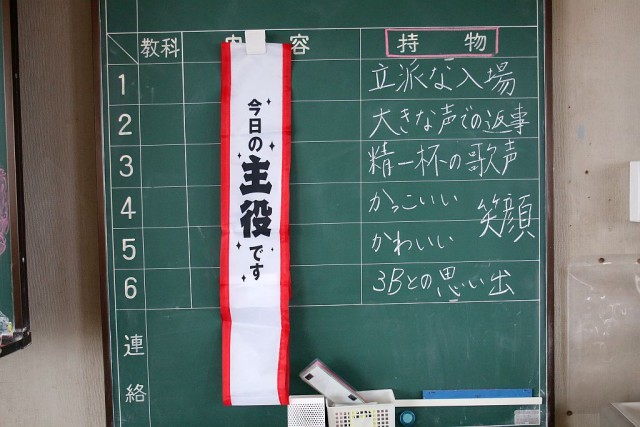 教科 内容 持物
1 立派な入場
2 大きな声での返事
3 精一杯の歌声
4 かっこいい 笑顔
5 かわいい
6 3Bとの思い出
連絡
今日の主役です